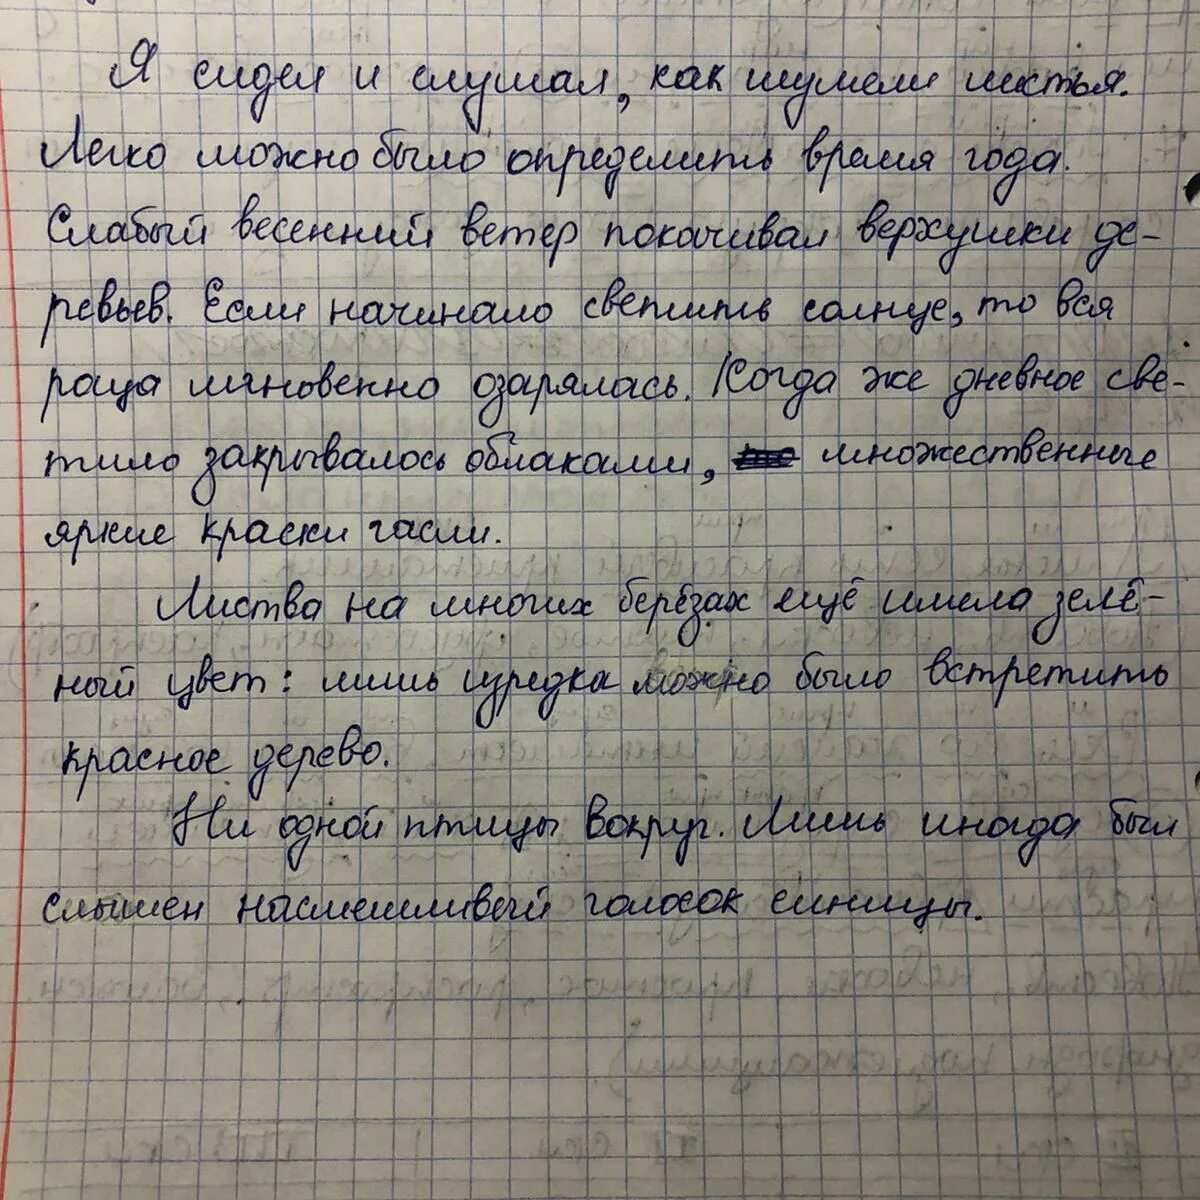 Я сидел и слушал, как шумели листья.
Легко можно было определить время года.
Слабый весенний ветер покачивал верхушки де-
ревьев. Если начинало светить солнце, то вся
роща мгновенно озарялась. Когда же дневное све-
тило закрывалось облаками, множественные
яркие краски гасли.
Листва на многих берёзах ещё имела зелё-
ный цвет: лишь изредка можно было встретить
красное дерево.
Ни одной птицы вокруг. Лишь иногда был
слышен насмешливый голосок синицы.